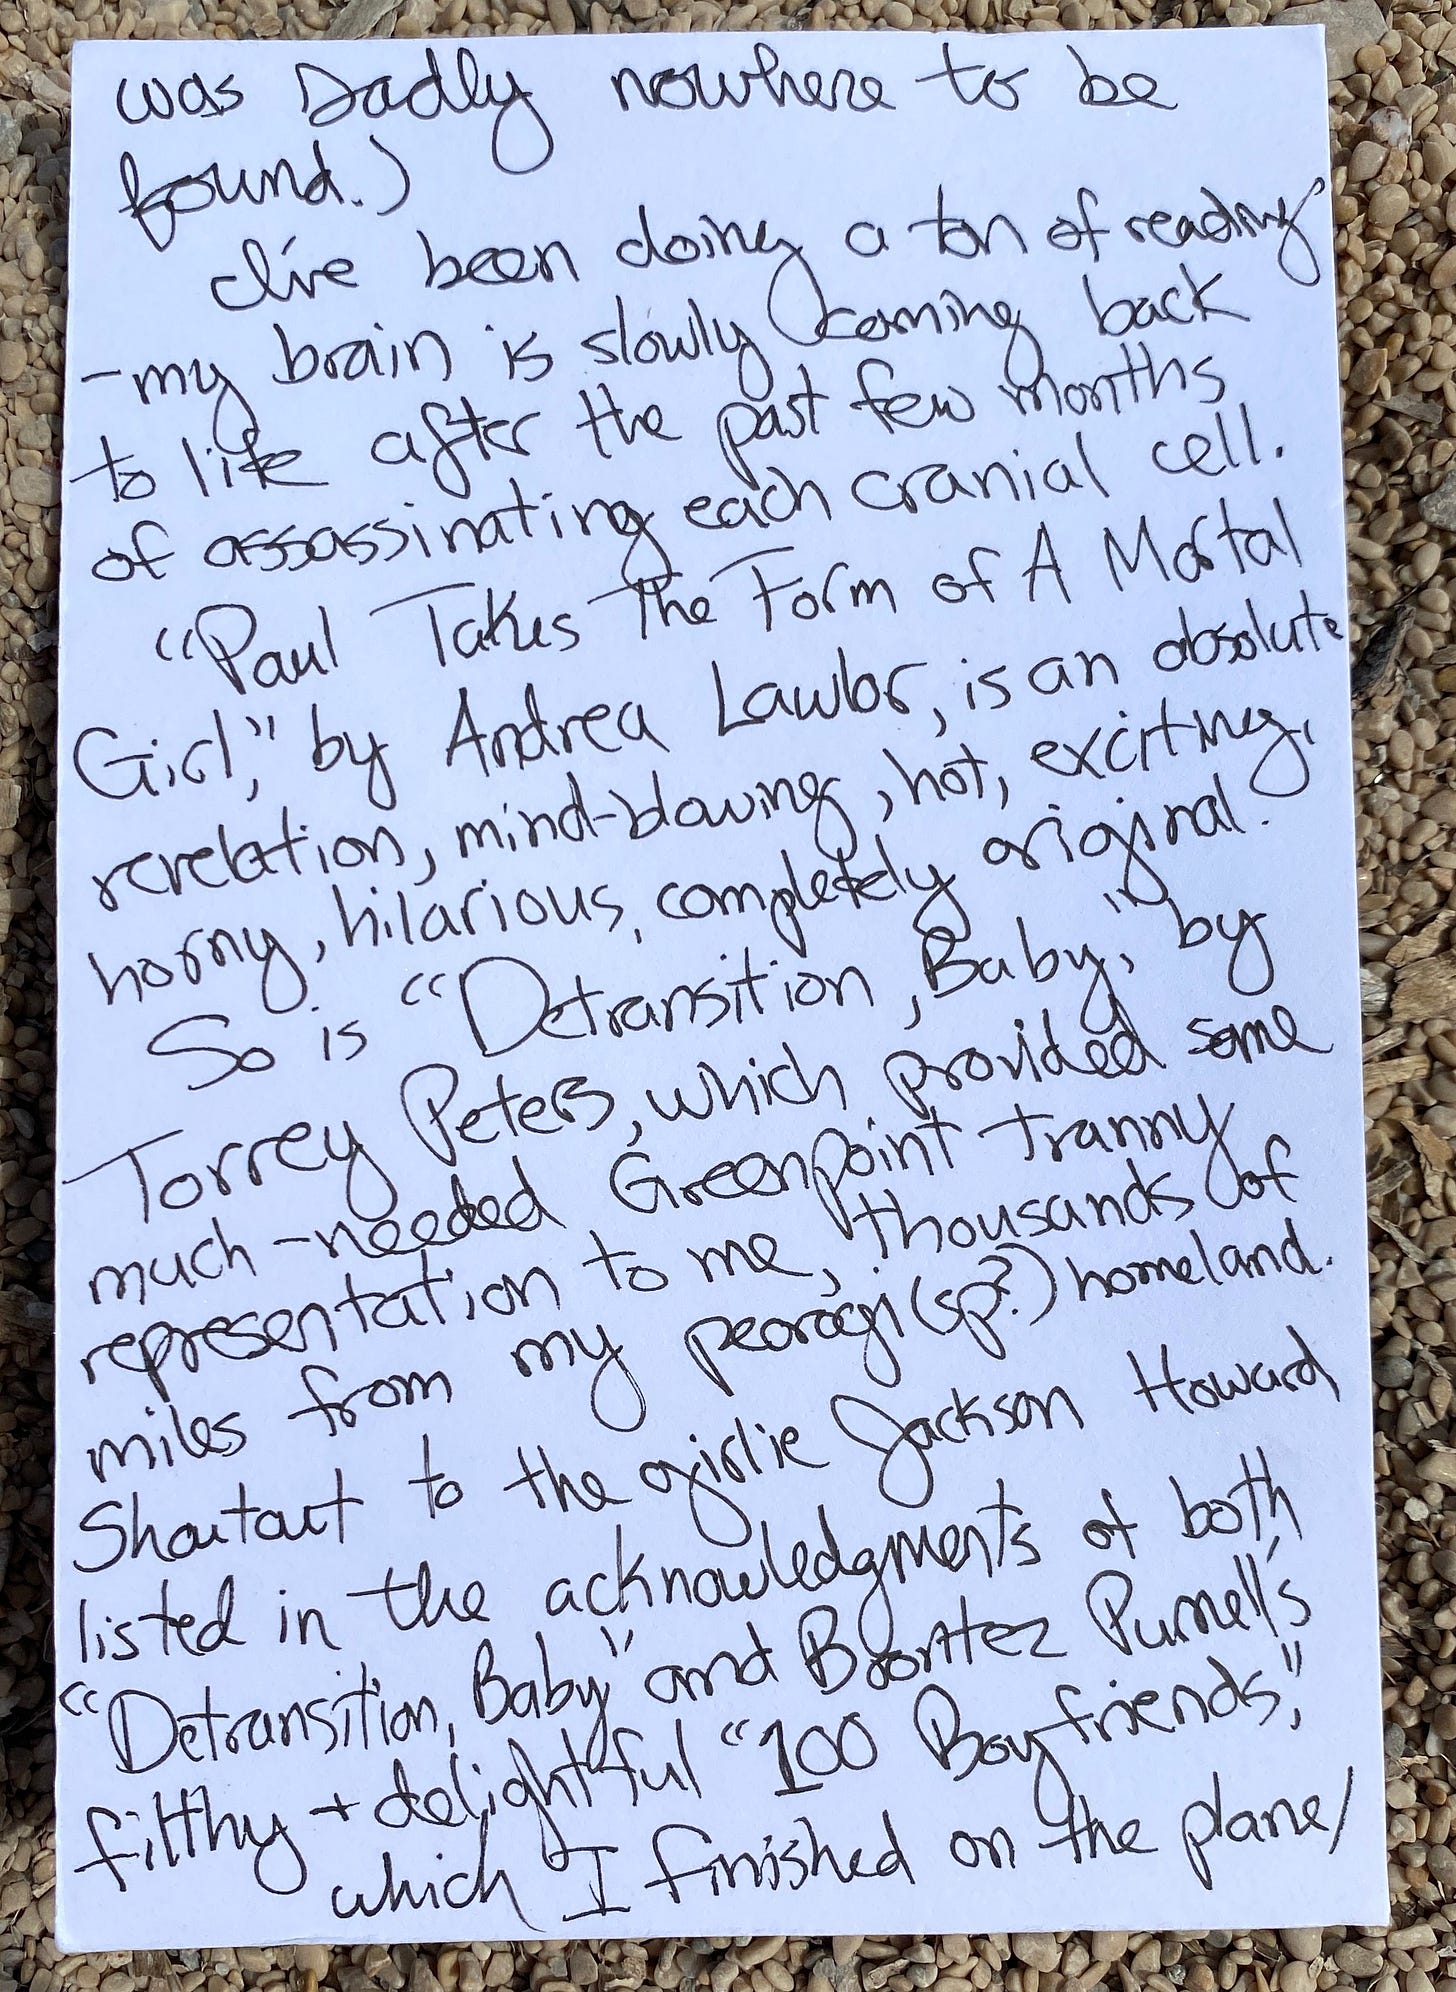 was sadly nowhere to be
found.)
I've been doing a ton of reading
-my brain is slowly coming back
to life after the past few months
of assassinating each cranial cell.
"Paul Takes The Form of A Mortal
Girl," by Andrea Lawlor, is an absolute
revelation, mind-blowing, hot, exciting,
horny, hilarious, completely original.
So is "Detransition, Baby," by
Torrey Peters, which provided some
much-needed Greenpoint tranny
representation to me, thousands of
miles from my peorogi (sp?) homeland.
Shoutout to the girlie Jackson Howard
listed in the acknowledgments of both
"Detransition, Baby" and Brontez Purnell's
filthy + delightful "100 Boyfriends,"
which I finished on the plane/